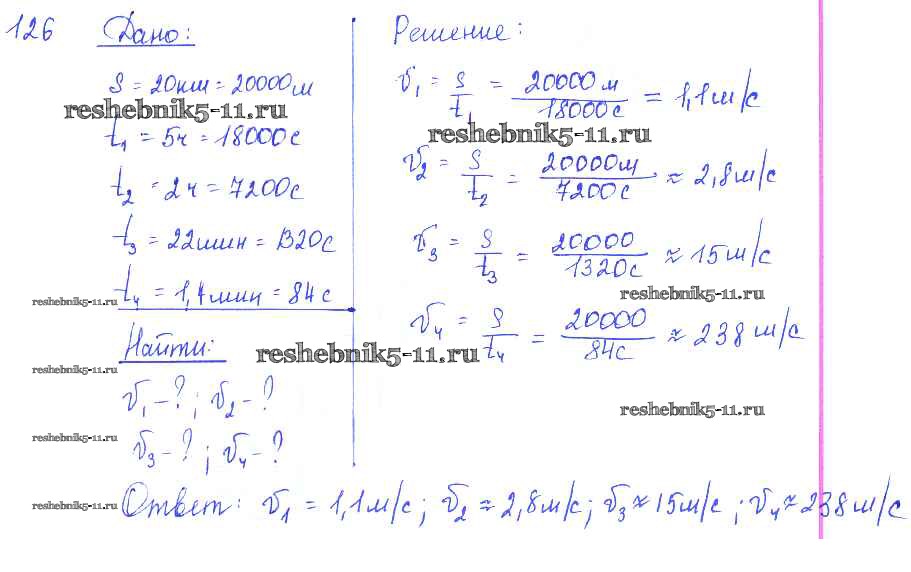 126 Дано:
S = 20км = 20000м
reshebnik5-11.ru
t₁ = 5ч = 18000с
t₂ = 2ч = 7200с
t₃ = 22мин = 1320с
t₄ = 1,4мин = 84с
reshebnik5-11.ru
Найти:
reshebnik5-11.ru
reshebnik5-11.ru
v₁ - ? ; v₂ - ?
reshebnik5-11.ru
v₃ - ? ; v₄ - ?
Решение:
v₁ = S/t₁ = 20000м/18000с = 1,1м/с
reshebnik5-11.ru
v₂ = S/t₂ = 20000м/7200с ≈ 2,8м/с
v₃ = S/t₃ = 20000/1320с ≈ 15м/с
reshebnik5-11.ru
v₄ = S/t₄ = 20000/84с ≈ 238м/с
reshebnik5-11.ru
reshebnik5-11.ru
Ответ: v₁ = 1,1м/с; v₂ ≈ 2,8м/с; v₃ ≈ 15м/с; v₄ ≈ 238м/с